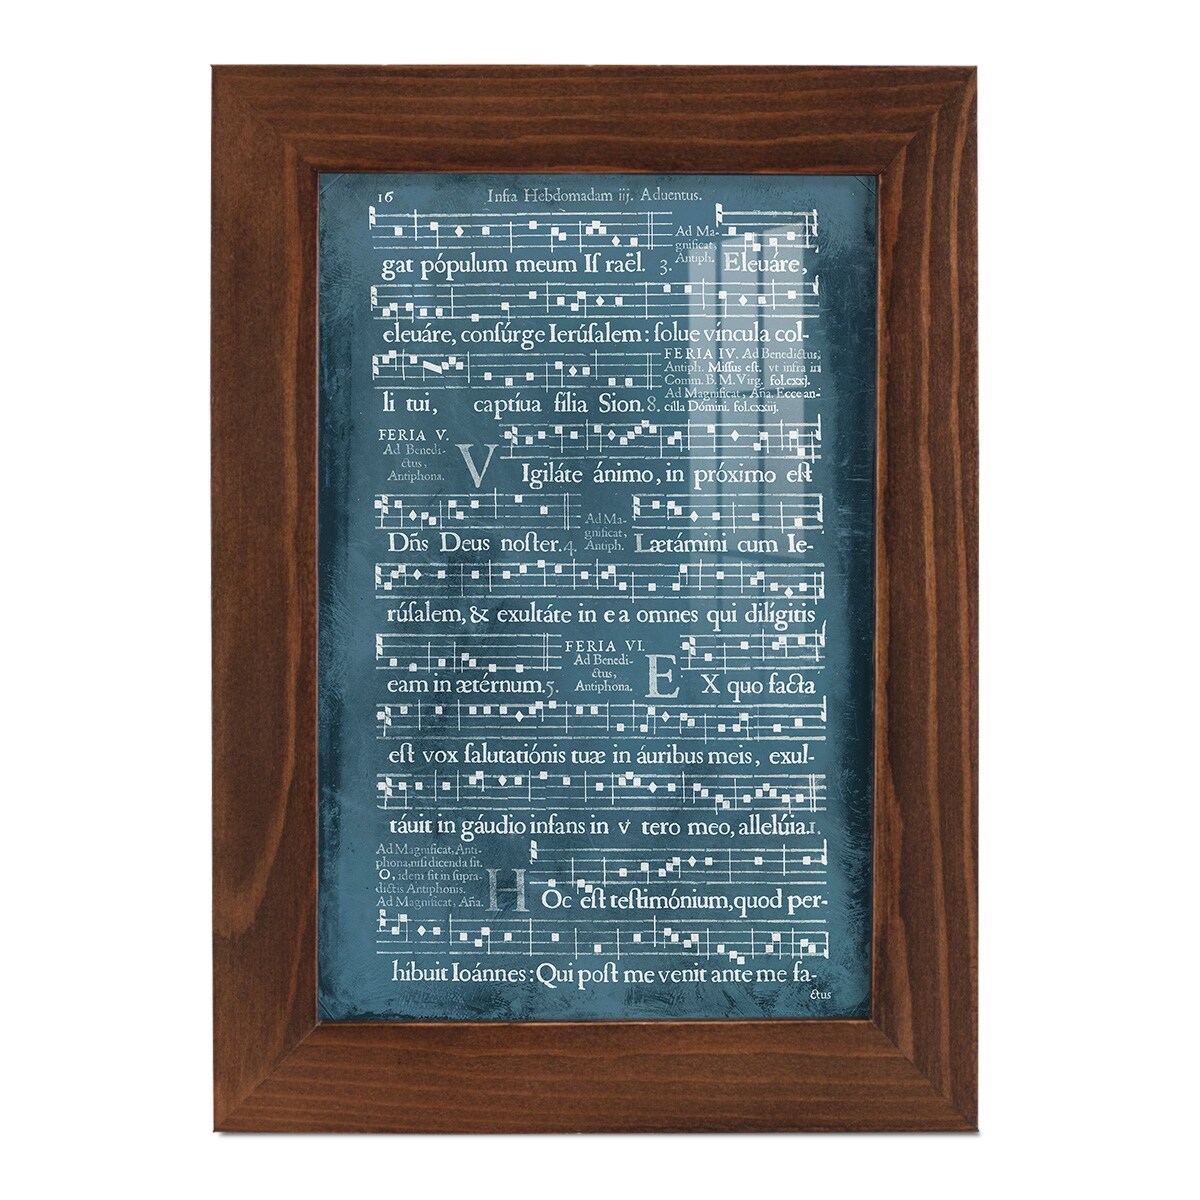 16 Infra Hebdomadam iij. Aduentus.
Ad Ma-
gnificat,
Antiph.
gat pópulum meum Iſ raël. 3. Eleuáre,
eleuáre, conſúrge Ierúſalem : ſolue víncula col-
FERIA IV. Ad Benedictus,
Antiph. Miſſus eſt. vt infra in
Comm. B. M. Virg. fol.cxxj.
Ad Magnificat, Aña. Ecce an-
cilla Dómini. fol.cxxiij.
li tui, captíua fília Sion. 8.
FERIA V.
Ad Benedi-
ctus,
Antiphona.
VIgiláte ánimo, in próximo eſt
Ad Ma-
gnificat,
Antiph.
Dñs Deus noſter. 4. Lætámini cum Ie-
rúſalem, & exultáte in ea omnes qui dilígitis
FERIA VI.
Ad Benedi-
ctus,
Antiphona.
eam in ætérnum. 5. EX quo facta
eſt vox ſalutatiónis tuæ in áuribus meis, exul-
táuit in gáudio infans in vtero meo, allelúia. 1.
Ad Magnificat, Anti-
phona, niſi dicenda ſit.
O, idem fit in ſupra-
dictis Antiphonis.
Ad Magnificat, Aña.
HOc eſt teſtimónium, quod per-
híbuit Ioánnes : Qui poſt me venit ante me fa-
ctus